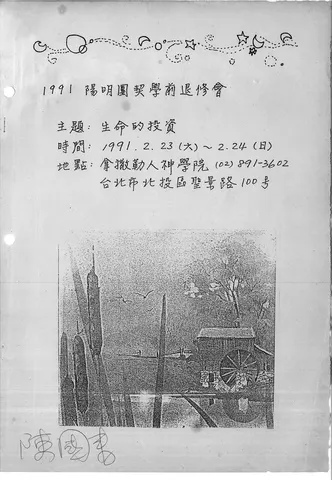 1991 陽明團契學前退修會
主題: 生命的投資
時間: 1991. 2. 23 (六) ~ 2. 24 (日)
地點: 拿撒勒人神學院 (02) 891-3602
台北市北投區聖景路100号
陳國書